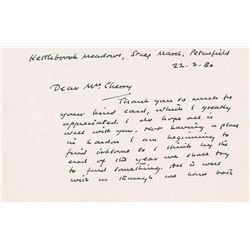 Kettlebrook Meadows, Steep Marsh, Petersfield
22. 3. 80
Dear Mrs Cherry
Thank you so much for
your kind card, which I greatly
appreciated. I do hope all is
well with you. Not having a place
in London I am beginning to
find irksome so I think by the
end of the year we shall try
to find something. All is well
with us though we have both